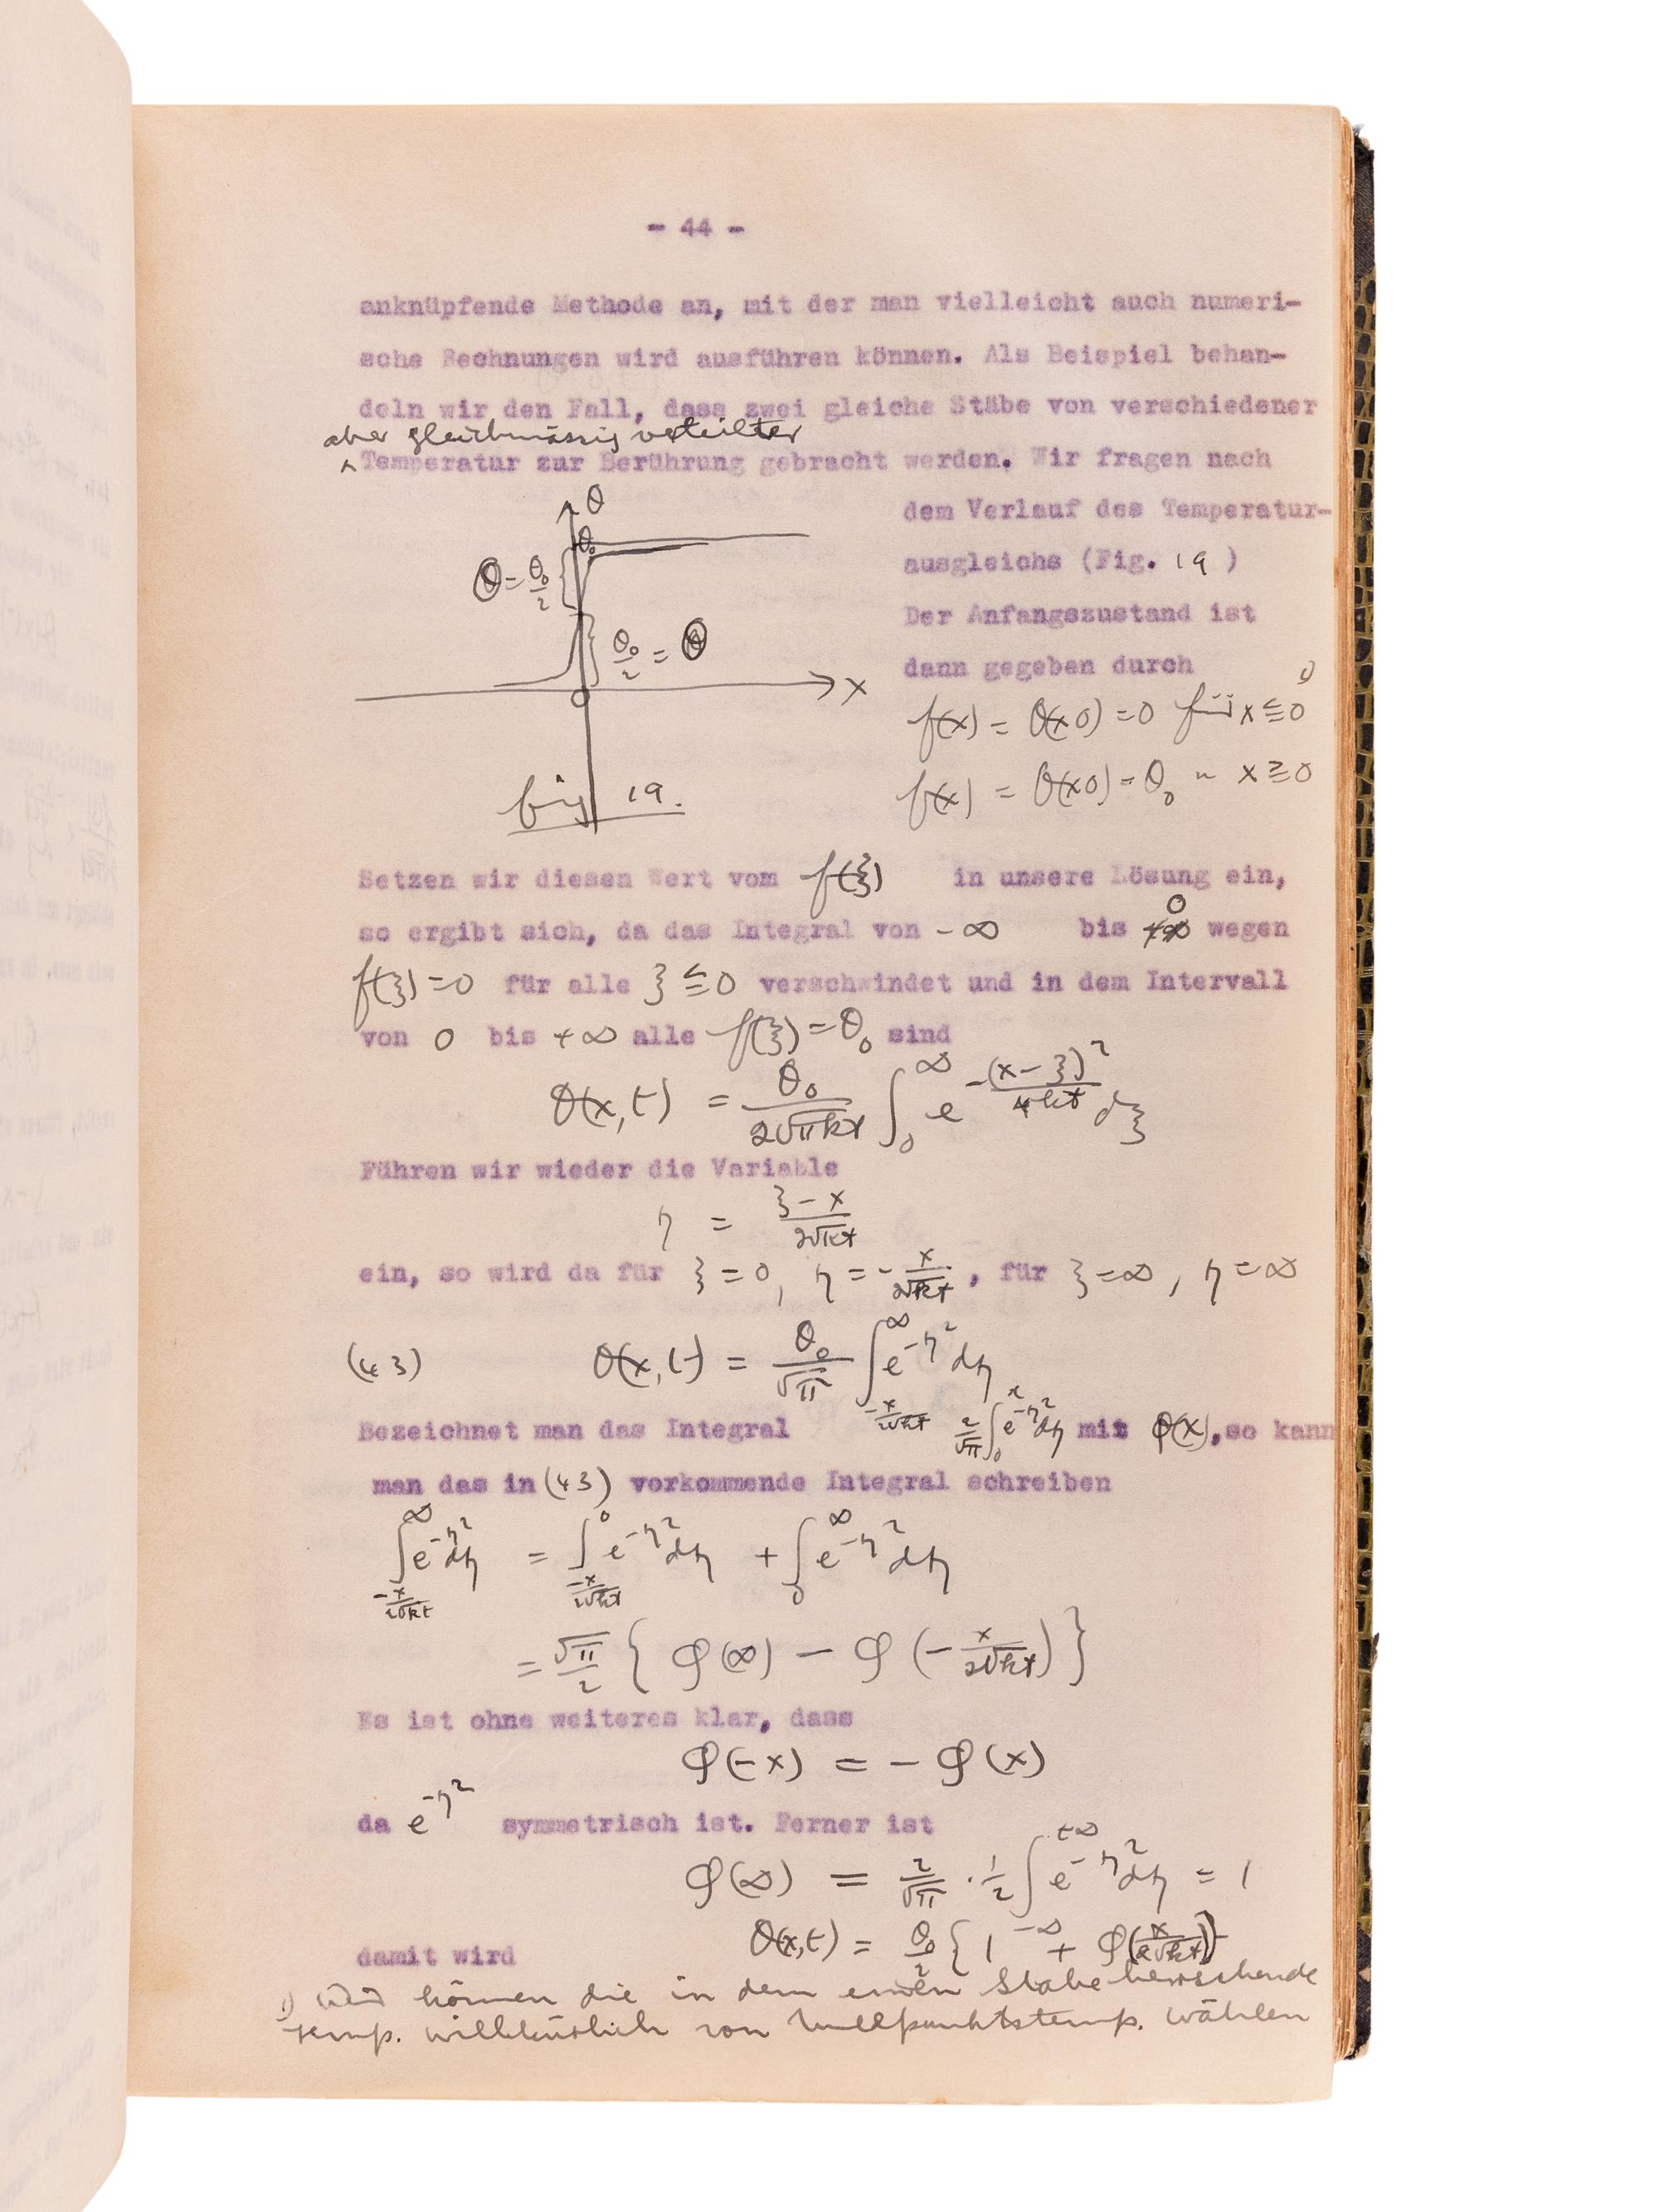 - 44 -
anknüpfende Methode an, mit der man vielleicht auch numeri-
sche Rechnungen wird ausführen können. Als Beispiel behan-
deln wir den Fall, dass zwei gleiche Stäbe von verschiedener
aber gleichmässig verteilter
Temperatur zur Berührung gebracht werden. Wir fragen nach
dem Verlauf des Temperatur-
ausgleichs (Fig. 19)
Der Anfangszustand ist
dann gegeben durch
f(x) = θ(x0) = 0 für x ≦ 0 1)
f(x) = θ(x0) = θ₀ " x ≧ 0
θ
θ₀
θ = θ₀/2
θ₀/2 = θ
x
0
Fig 19.
Setzen wir diesen Wert vom f(ξ) in unsere Lösung ein,
so ergibt sich, da das Integral von -∞ bis 0 wegen
f(ξ) = 0 für alle ξ ≦ 0 verschwindet und in dem Intervall
von 0 bis +∞ alle f(ξ) = θ₀ sind
θ(x,t) = θ₀/(2√πkt) ∫₀^∞ e^(-(x-ξ)²/4kt) dξ
Führen wir wieder die Variable
η = (ξ-x)/(2√kt)
ein, so wird da für ξ = 0, η = -x/(2√kt), für ξ = ∞, η = ∞
(43) θ(x,t) = θ₀/√π ∫_(-x/2√kt)^∞ e^(-η²) dη
Bezeichnet man das Integral 2/√π ∫₀^x e^(-η²) dη mit φ(x), so kann
man das in (43) vorkommende Integral schreiben
∫_(-x/2√kt)^∞ e^(-η²) dη = ∫_(-x/2√kt)^0 e^(-η²) dη + ∫₀^∞ e^(-η²) dη
= √π/2 { φ(∞) - φ(-x/(2√kt)) }
Es ist ohne weiteres klar, dass
φ(-x) = - φ(x)
da e^(-η²) symmetrisch ist. Ferner ist
φ(∞) = 2/√π · 1/2 ∫_(-∞)^(+∞) e^(-η²) dη = 1
damit wird θ(x,t) = θ₀/2 { 1 + φ(x/(2√kt)) }
1) Wir können die in dem einen Stabe herrschende
Temp. willkürlich von Nullpunktstemp. wählen